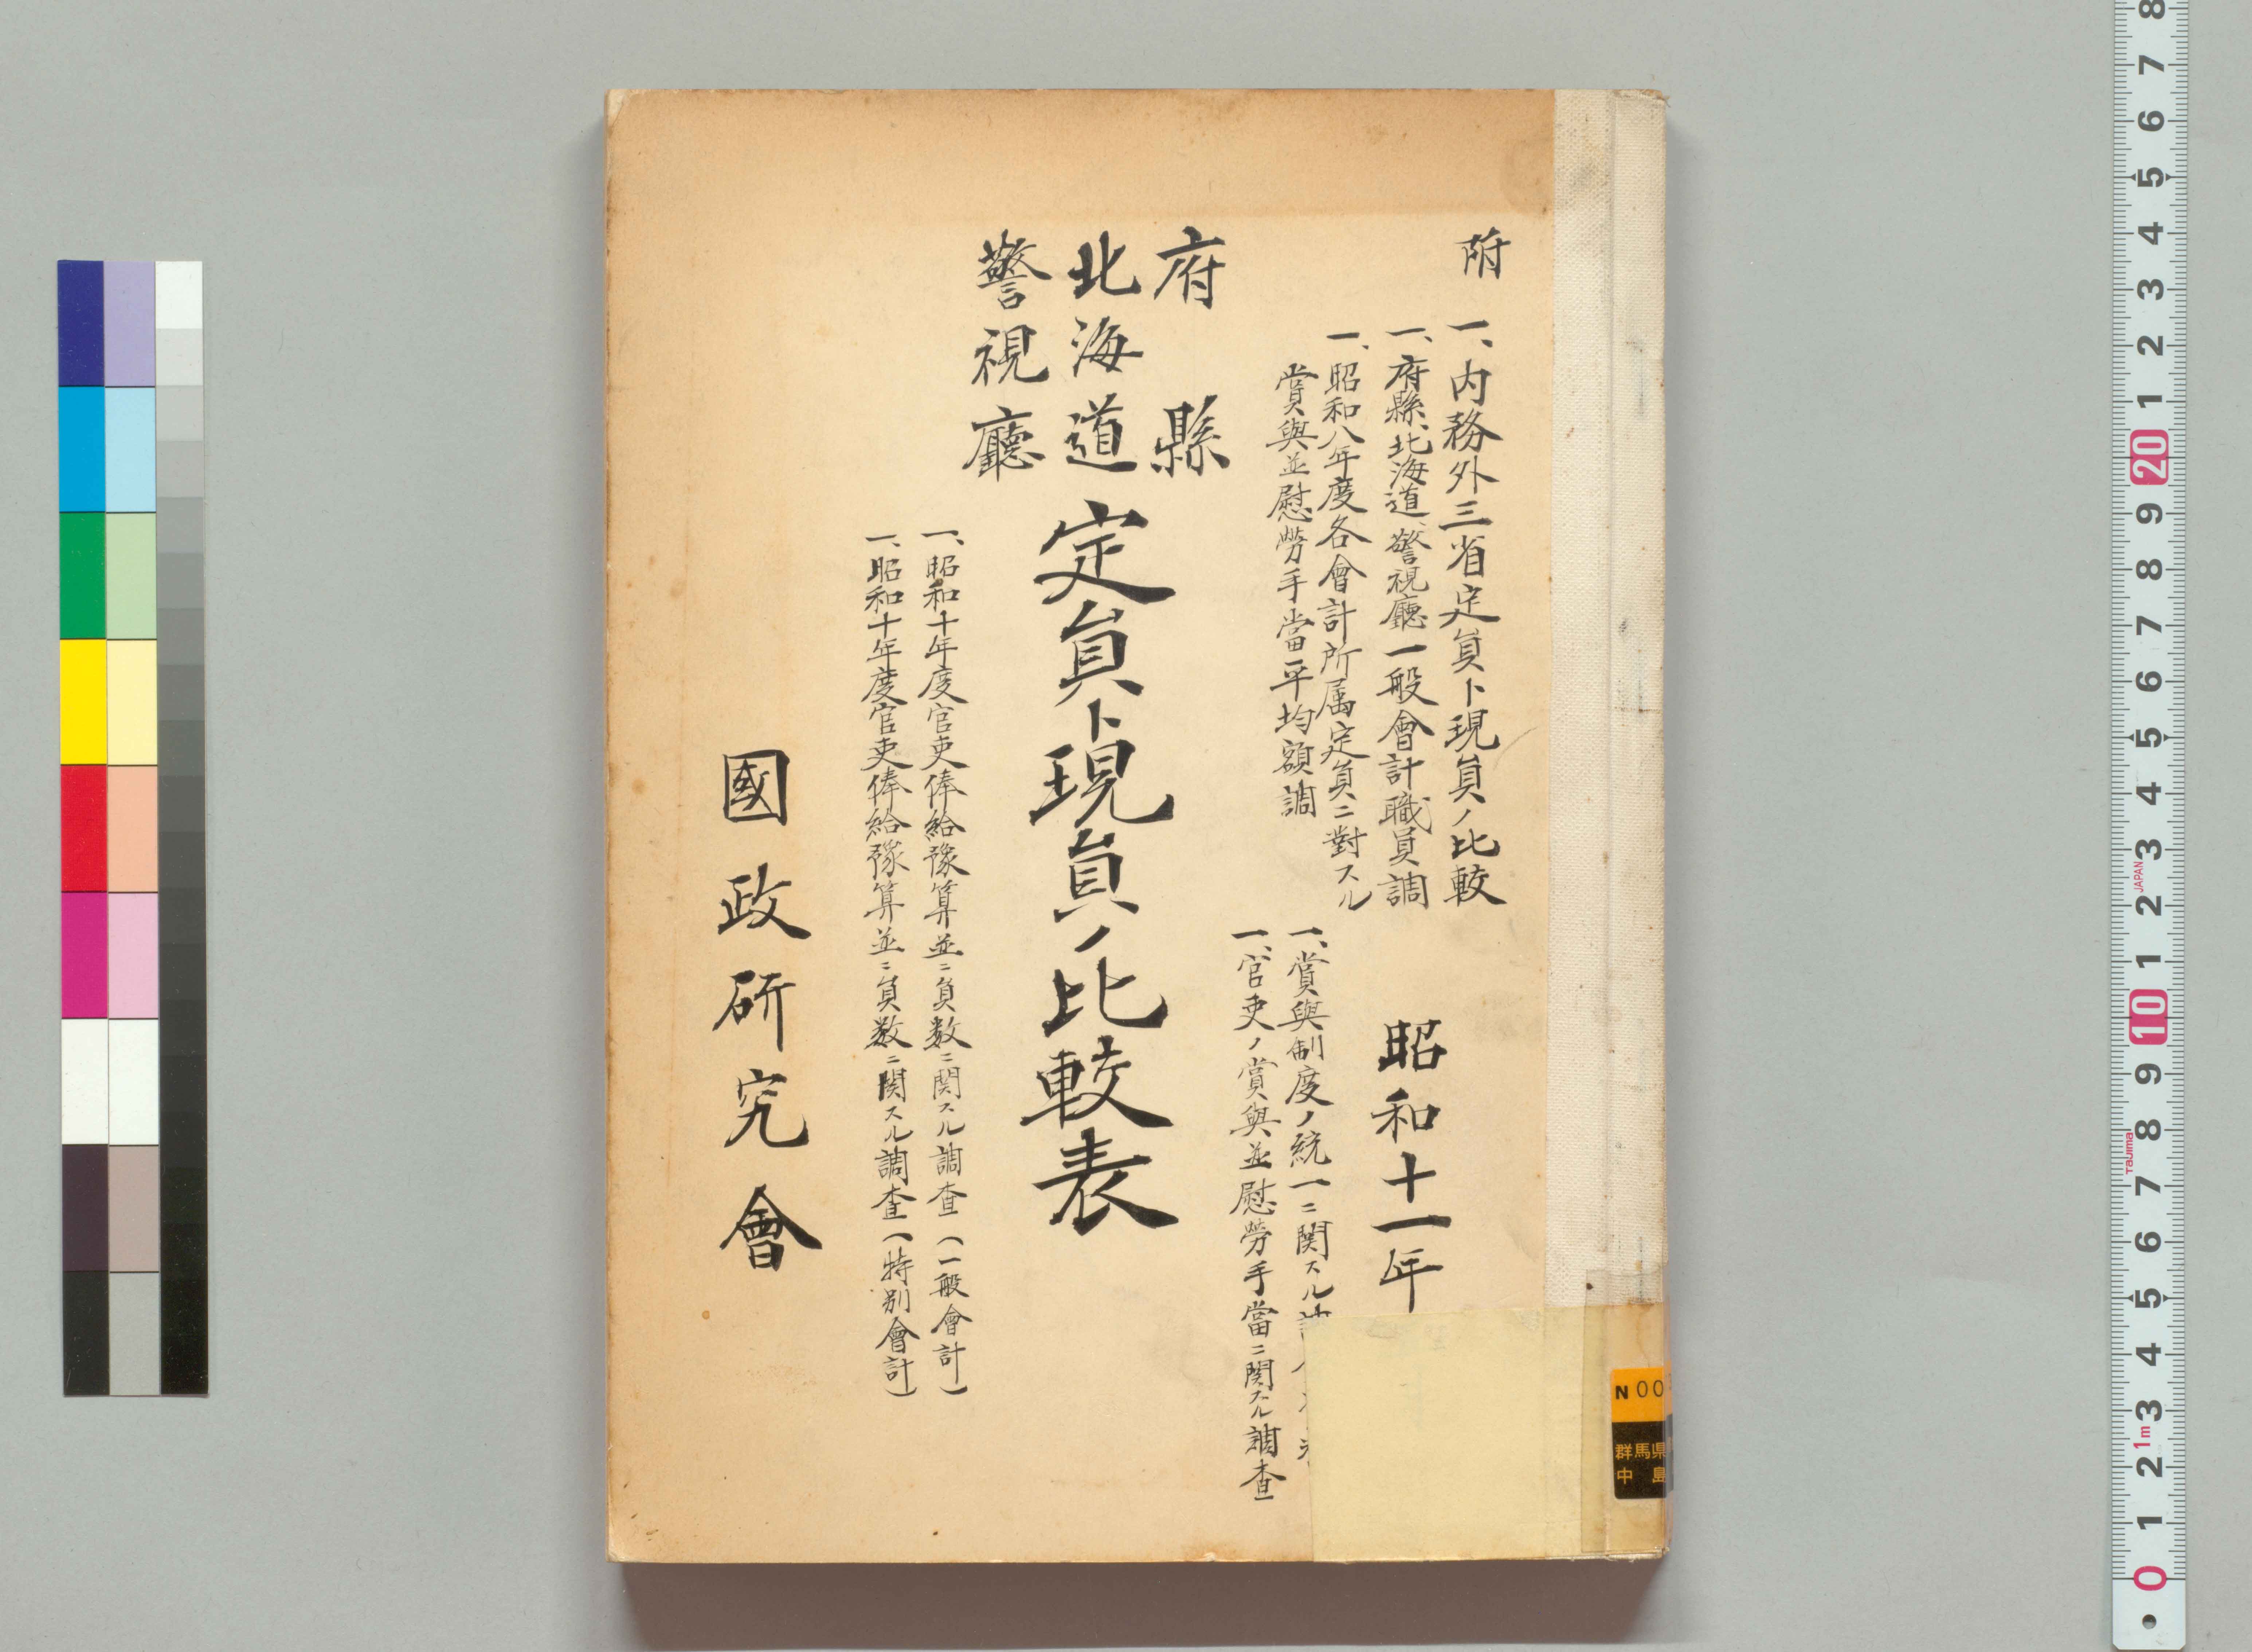 附
一、内務外三省定員ト現員ノ比較
一、府縣、北海道、警視廳一般會計職員調
一、昭和八年度各會計所属定員ニ對スル
賞與並慰勞手當平均額調
昭和十一年
一、賞與制度ノ統一ニ関スル
一、官吏ノ賞與並慰勞手當ニ関スル調査
府縣
北海道
警視廳
定員ト現員ノ比較表
一、昭和十年度官吏俸給豫算並ニ員数ニ関スル調査(一般會計)
一、昭和十年度官吏俸給豫算並ニ員数ニ関スル調査(特別會計)
國政研究會
N 00
群馬県
中島
8
7
6
5
4
3
2
1
20
9
8
7
6
5
4
3
JAPAN
2
1
10
9
8
Tajima
7
6
5
4
3
1m
2
1
0